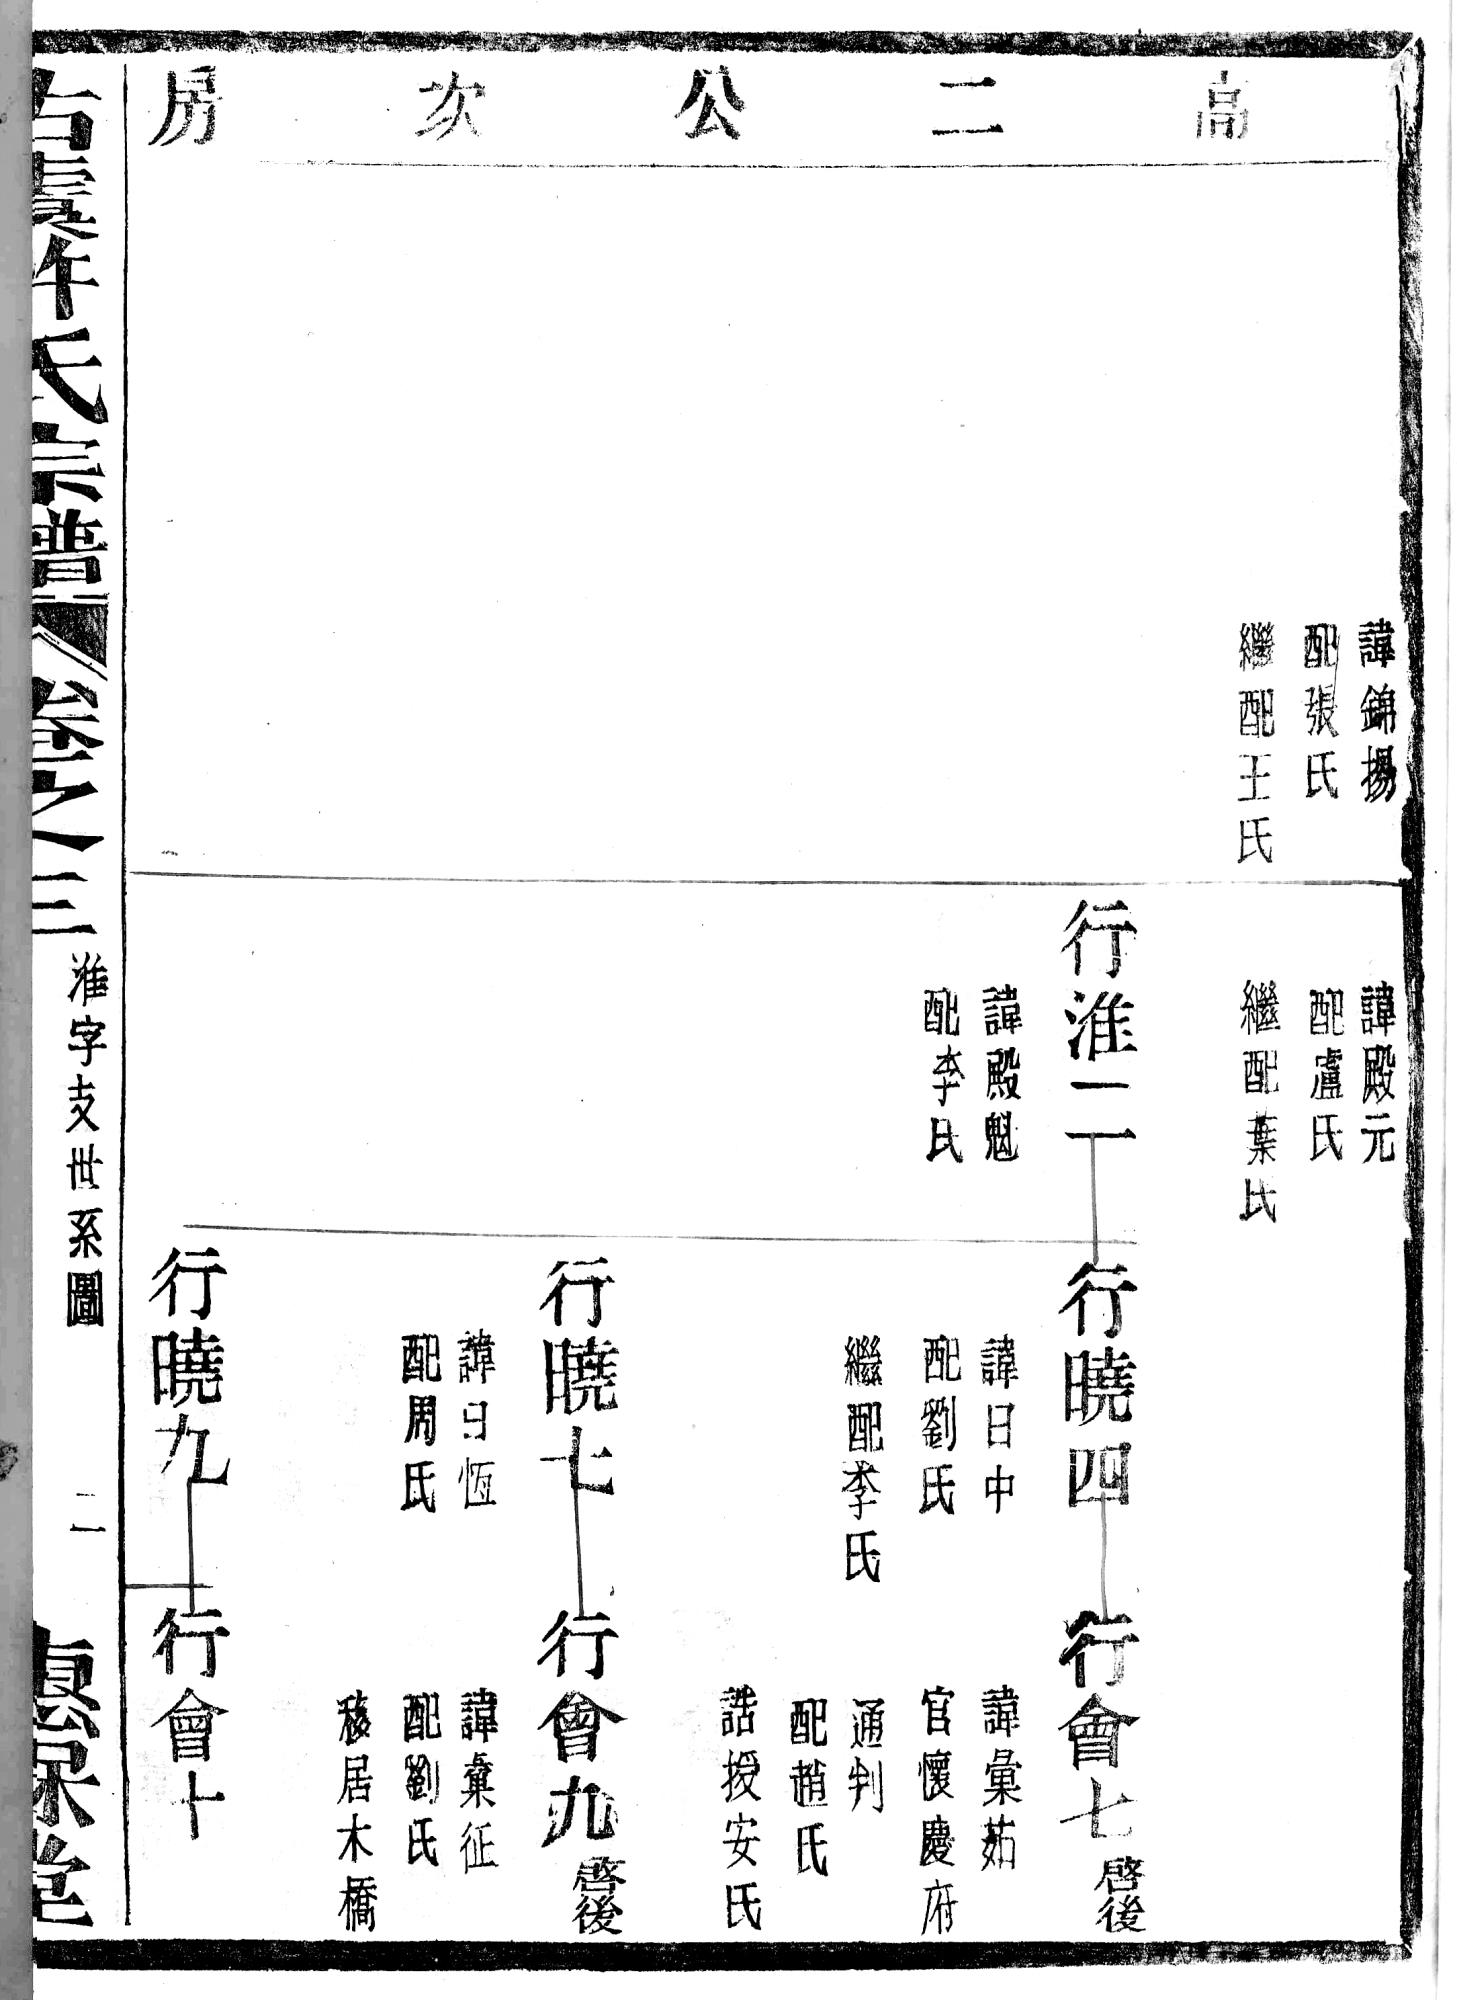 高二公次房
諱錦揚
配張氏
繼配王氏
諱殿元
配盧氏
繼配葉氏
行淮二
諱殿魁
配李氏
行曉四
諱日中
配劉氏
繼配李氏
行會七
啓後
諱彙茹
官懷慶府
通判
配趙氏
誥授安氏
行曉七
諱日恆
配周氏
行會九
啓後
諱彙征
配劉氏
移居木橋
行曉九
行會十
許氏宗譜
卷之三
淮字支世系圖
二
堂